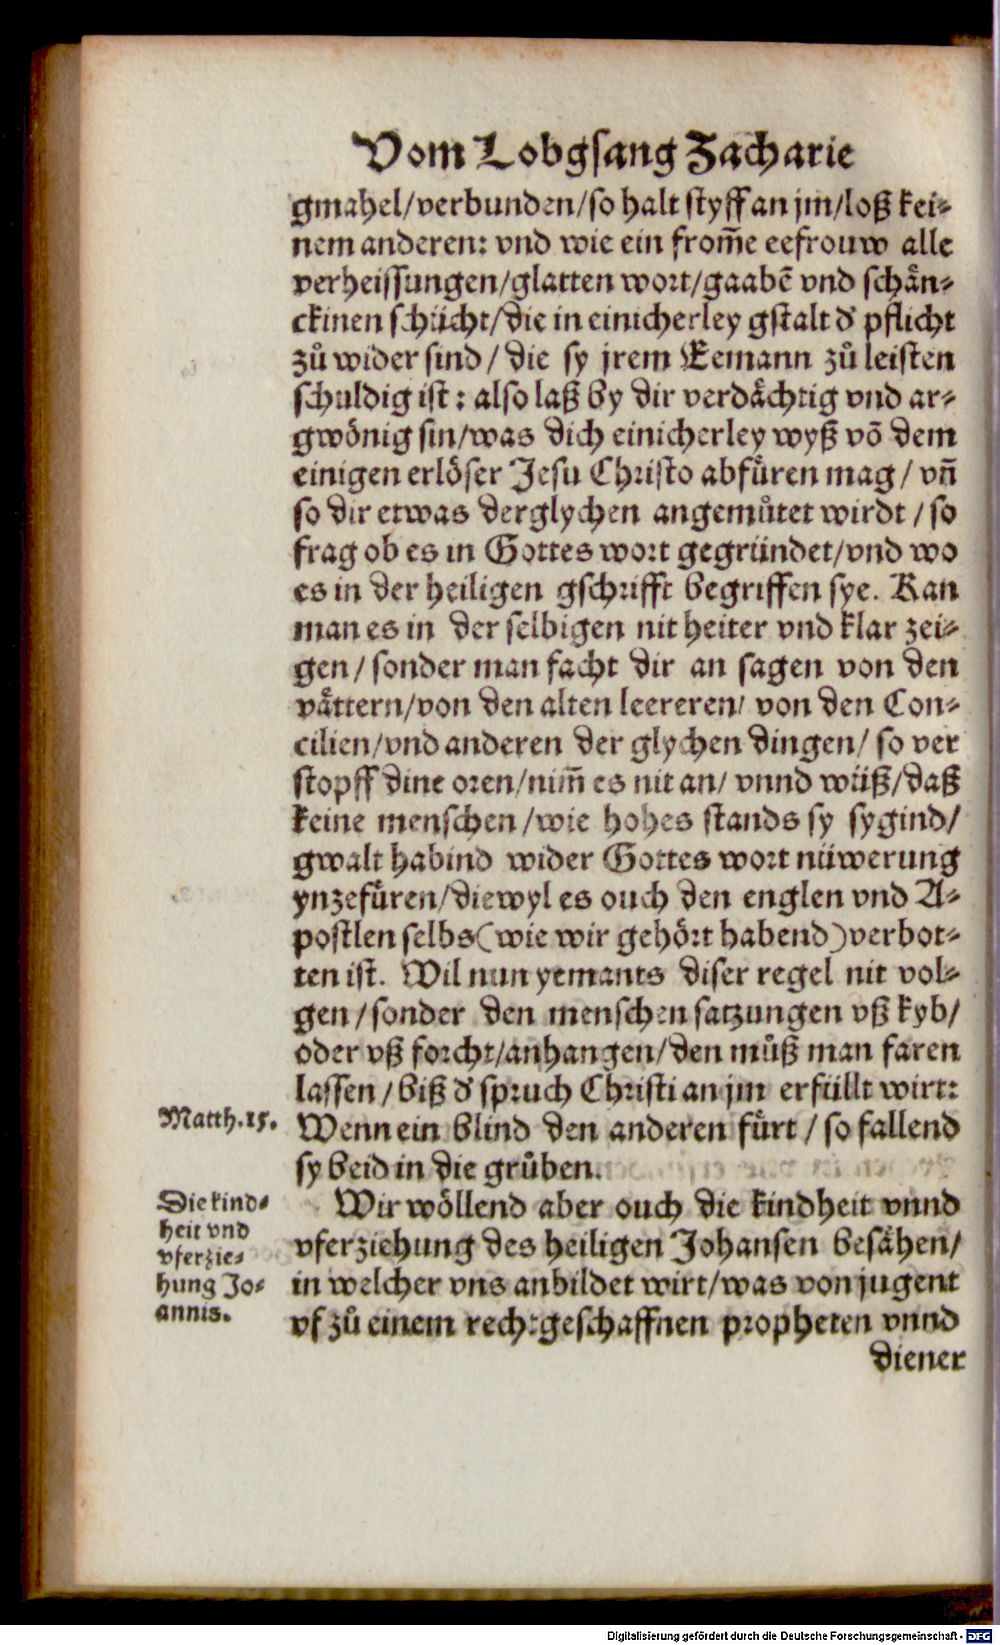 Vom Lobgsang Zacharie
gmahel/verbunden/so halt styff an jm/loß kei-
nem anderen: vnd wie ein from̄e eefrouw alle
verheissungen/glatten wort/gaabē vnd schaͤn-
ckinen schücht/die in einicherley gstalt d' pflicht
zů wider sind / die sy jrem Eemann zů leisten
schuldig ist: also laß by dir verdaͤchtig vnd ar-
gwoͤnig sin/was dich einicherley wyß vō dem
einigen erloͤser Jesu Christo abfuͤren mag / vn̄
so dir etwas derglychen angemůtet wirdt / so
frag ob es in Gottes wort gegründet/vnd wo
es in der heiligen gschrifft begriffen sye. Kan
man es in der selbigen nit heiter vnd klar zei-
gen / sonder man facht dir an sagen von den
vaͤttern/von den alten leereren/ von den Con-
cilien/vnd anderen der glychen dingen/ so ver
stopff dine oren/nim̄ es nit an/ vnnd wüß/daß
keine menschen /wie hohes stands sy sygind/
gwalt habind wider Gottes wort nüwerung
ynzefuͤren/diewyl es ouch den englen vnd A-
postlen selbs(wie wir gehoͤrt habend)verbot-
ten ist. Wil nun yemants diser regel nit vol-
gen / sonder den menschen satzungen vß kyb/
oder vß forcht/anhangen/den můß man faren
lassen / biß d' spruch Christi an jm erfüllt wirt:
Matth.15.
Wenn ein blind den anderen fuͤrt / so fallend
sy beid in die gruͤben.
Die kind-
heit vnd
vferzie-
hung Jo-
annis.
Wir woͤllend aber ouch die kindheit vnnd
vferziehung des heiligen Johansen besaͤhen/
in welcher vns anbildet wirt/was von jugent
vf zů einem rechtgeschaffnen propheten vnnd
diener
Digitalisierung gefördert durch die Deutsche Forschungsgemeinschaft - DFG